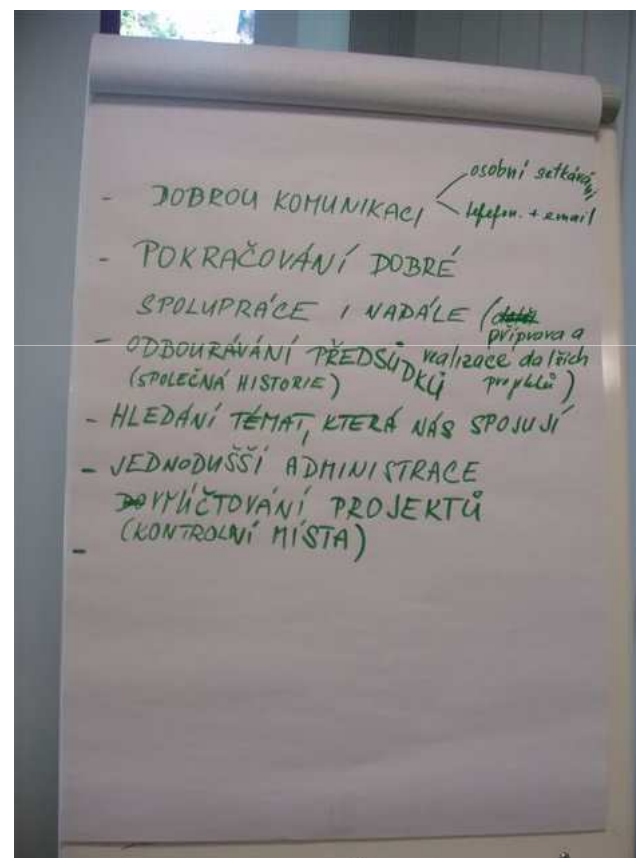 - DOBROU KOMUNIKACI
osobní setkávání
telefon. + email
- POKRAČOVÁNÍ DOBRÉ
SPOLUPRÁCE I NADÁLE (
příprava a
realizace dalších
projektů)
- ODBOURÁVÁNÍ PŘEDSUDKŮ
(SPOLEČNÁ HISTORIE)
- HLEDÁNÍ TÉMAT, KTERÁ NÁS SPOJUJÍ
- JEDNODUŠŠÍ ADMINISTRACE
VYÚČTOVÁNÍ PROJEKTŮ
(KONTROLNÍ MÍSTA)
-